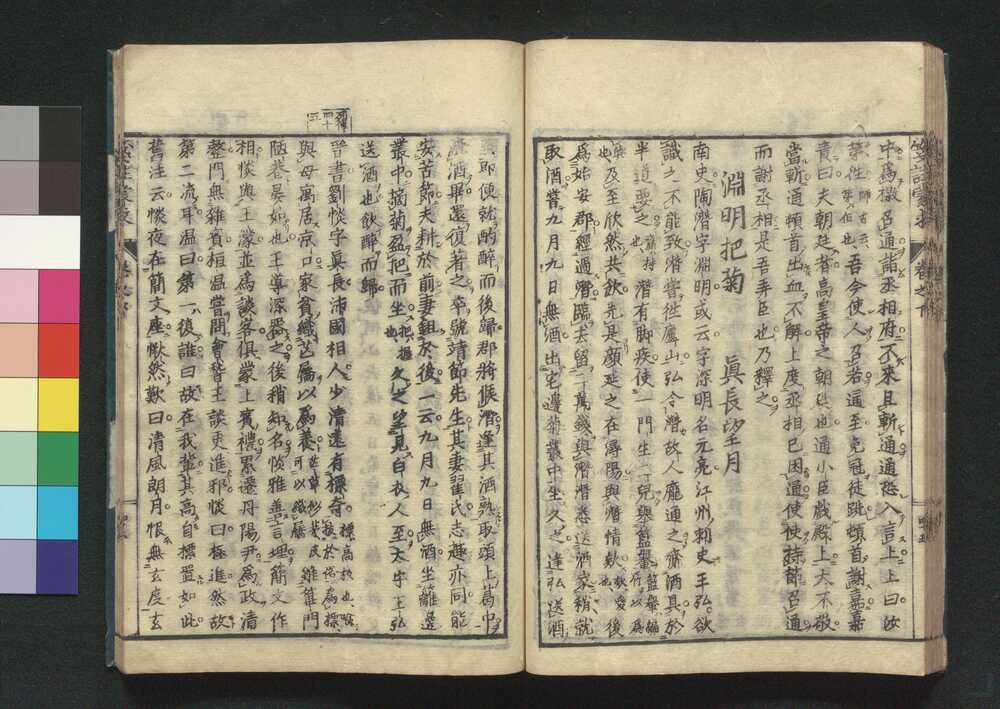 中爲檄召通詣丞相府不來且斬通通恐入言上上曰汝
第往吾今使人召若通至免冠徒跣頓首謝嘉嘉
責曰夫朝廷者高皇帝之朝廷也通小臣戲殿上大不敬
當斬通頓首出血不解上度丞相已困通使使持節召通
而謝丞相是吾弄臣也乃釋之
淵明把菊 眞長望月
南史陶潛字淵明或云字深明名元亮江州刺史王弘欲
識之不能致潛嘗往廬山弘令潛故人龐通之齎酒具於
半道要之潛有脚疾使一門生二兒舉籃轝
及至欣然共飲先是顔延之在潯陽與潛情款後
爲始安郡經過潛臨去留二萬錢與潛潛悉送酒家稍就
取酒嘗九月九日無酒出宅邊菊叢中坐久之逢弘送酒
至即便就酌醉而後歸郡將候潛逢其酒熟取頭上葛巾
漉酒畢還復著之卒號靖節先生其妻翟氏志趣亦同能
安苦節夫耕於前妻鋤於後一云九月九日無酒坐離邊
叢中摘菊盈把而坐久之望見白衣人至太守王弘
送酒也飲醉而歸
晉書劉惔字眞長沛國相人少清遠有標奇
與母寓居京口家貧織芒屩以爲養雖篳門
陋巷晏如也王導深器之後稍知名惔雅善言理簡文作
相惔與王濛並爲談客俱蒙上賓禮累遷丹陽尹爲政清
整門無雜賓桓温嘗問會稽王談更進邪惔曰極進然故
第二流耳温曰第一復誰曰故在我輩其高自標置如此
舊注云惔夜在簡文座愀然歎曰清風朗月恨無玄度玄